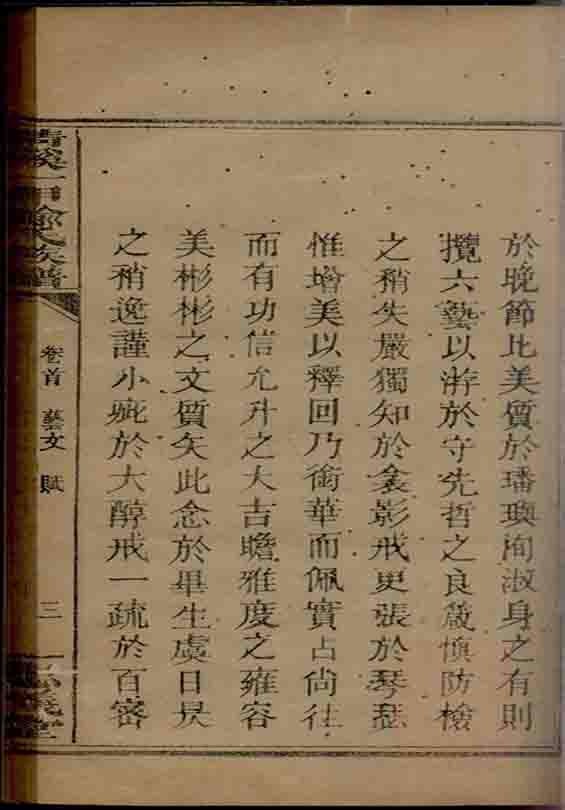 於晚節比美質於璠璵洵淑身之有則
攬六藝以游於守先哲之良箴慎防檢
之稍失嚴獨知於衾影戒更張於琴瑟
惟增美以釋回乃銜華而佩實占尚往
而有功信允升之大吉瞻雅度之雍容
美彬彬之文質矢此念於畢生虞日昃
之稍逸謹小疵於大醇戒一疏於百密
卷首 藝文 賦
三